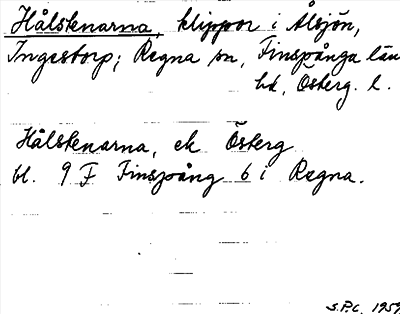 Hålstenarna, klippor i Ålsjön,
Ingestorp; Regna sn, Finspånga län
hd, Österg. l.
Hålstenarna, ek Österg
bl. 9 F Finspång 6 i Regna.
S.P.C. 1959